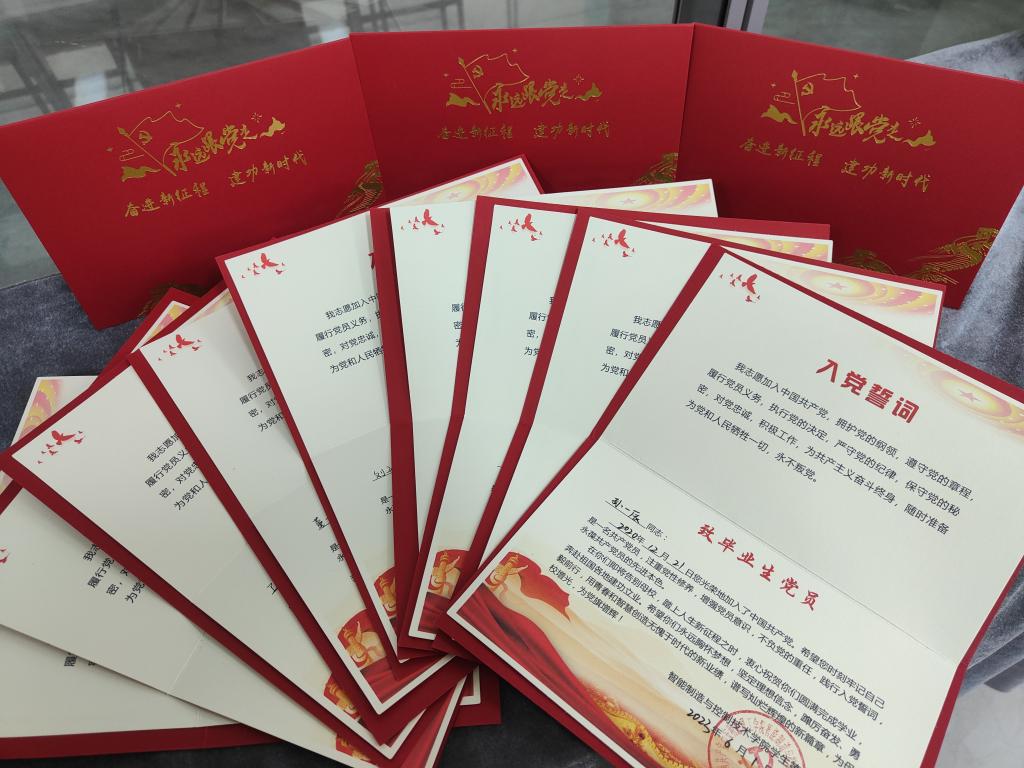 永远跟党走
奋进新征程 建功新时代
永远跟党走
奋进新征程 建功新时代
永远跟党走
奋进新征程 建功新时代
我志愿加入中国共产
履行党员义务,
密,对党忠诚,
为党和人民牺牲
入党誓词
我志愿加入中国共产党,拥护党的纲领,遵守党的章程,
履行党员义务,执行党的决定,严守党的纪律,保守党的秘
密,对党忠诚,积极工作,为共产主义奋斗终身,随时准备
为党和人民牺牲一切,永不叛党。
致毕业生党员
同志:
2020年12月21日您光荣地加入了中国共产党。希望您时刻牢记自己
是一名共产党员,注重党性修养,增强党员意识,不负党的重任,践行入党誓词,
永葆共产党员的先进本色。
在你们即将告别母校,踏上人生新征程之时,衷心祝贺你们圆满完成学业,
奔赴祖国各地建功立业。希望你们永远胸怀梦想,坚定理想信念,踔厉奋发、勇
毅前行,用青春和智慧创造无愧于时代的新业绩,谱写灿烂辉煌的新篇章,为母
校增光,为党旗增辉!
智能制造与控制技术学院学生第
2023年6月